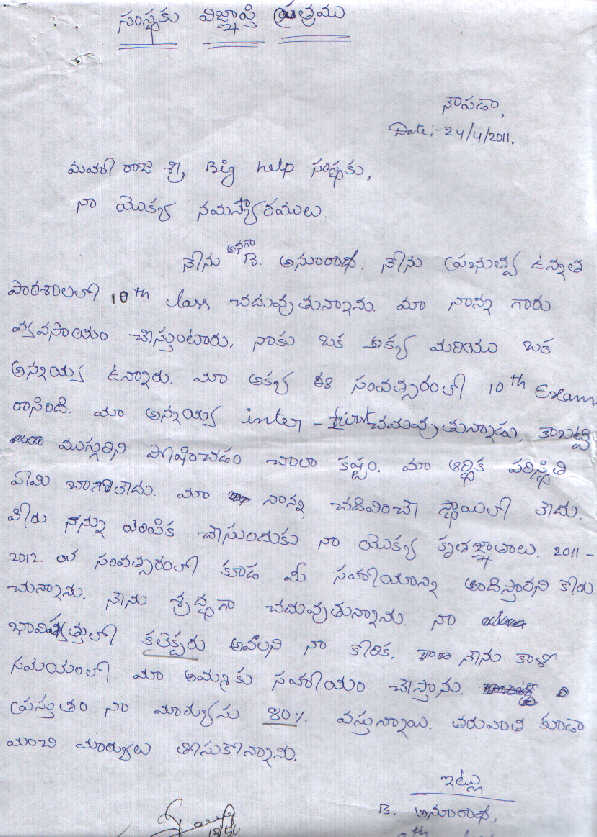 సంస్థకు విజ్ఞాప్తి పత్రము
Date:- 24/4/2011.
శ్రీ, Big help సంస్థకు,
నా యొక్క నమస్కారములు.
అనగా
నేను B. అనురాధ. నేను ప్రభుత్వ ఉన్నత
పాఠశాలలో 10th class చదువుతున్నాను. మా నాన్న గారు
వ్యవసాయం చేస్తుంటారు. నాకు ఒక అక్క మరియు ఒక
అన్నయ్య ఉన్నారు. మా అక్క ఈ సంవత్సరంలో 10th Exams
రాసింది. మా అన్నయ్య inter - చదువుతున్నాడు కాబట్టి
ముగ్గురిని పోషించడం చాలా కష్టం. మా ఆర్థిక పరిస్థితి
ఏమి బాగాలేదు. మా నాన్న చదివించే స్థాయిలో లేదు.
మీరు నన్ను ఎంపిక చేసుందుకు నా యొక్క కృతజ్ఞాతాలు. 2011 -
2012 వ సంవత్సరంలో కూడ మీ సహాయాన్ని అందిస్తారని కోరు
చున్నాను. నేను శ్రద్ధగా చదువుతున్నాను నా
భావిష్యత్తులో కలెక్టరు అవ్వాలని నా కోరిక. నేను కాళీ
సమయంలో మా అమ్మకు సహాయం చేస్తాను.
ప్రస్తుతం నా మార్కులు 80% వస్తున్నాయి. కూడా
మంచి మార్కులు తీసుకొన్నాను.
ఇట్లు
B. అనురాధ,